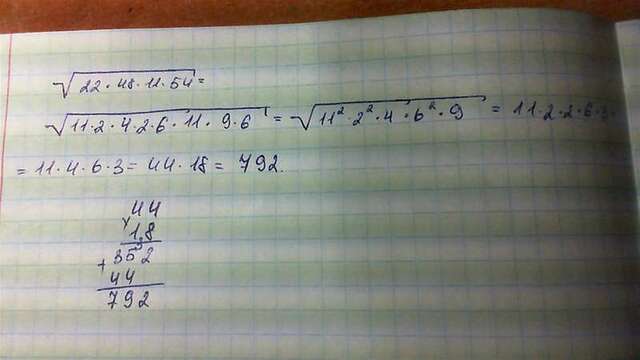 √22·48·11·54 =
√11·2·4·2·6·11·9·6 = √11²·2²·4·6²·9 = 11·2·2·6·3
= 11·4·6·3 = 44·18 = 792.
44
× 18
352
+ 44
792